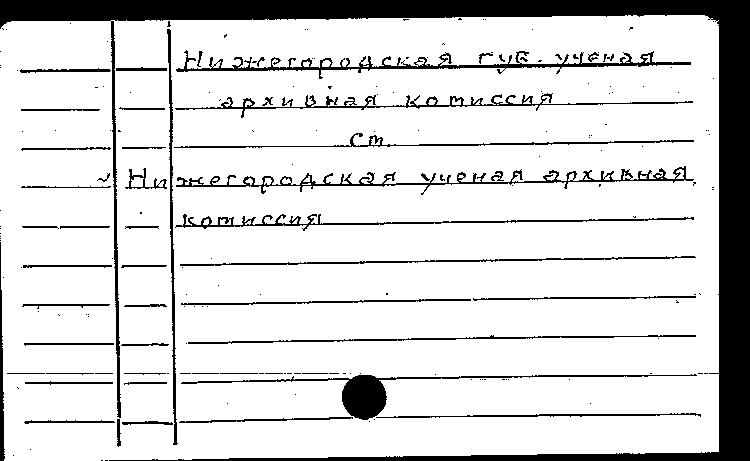 Нижегородская губ. ученая
архивная комиссия
см.
Нижегородская ученая архивная
комиссия